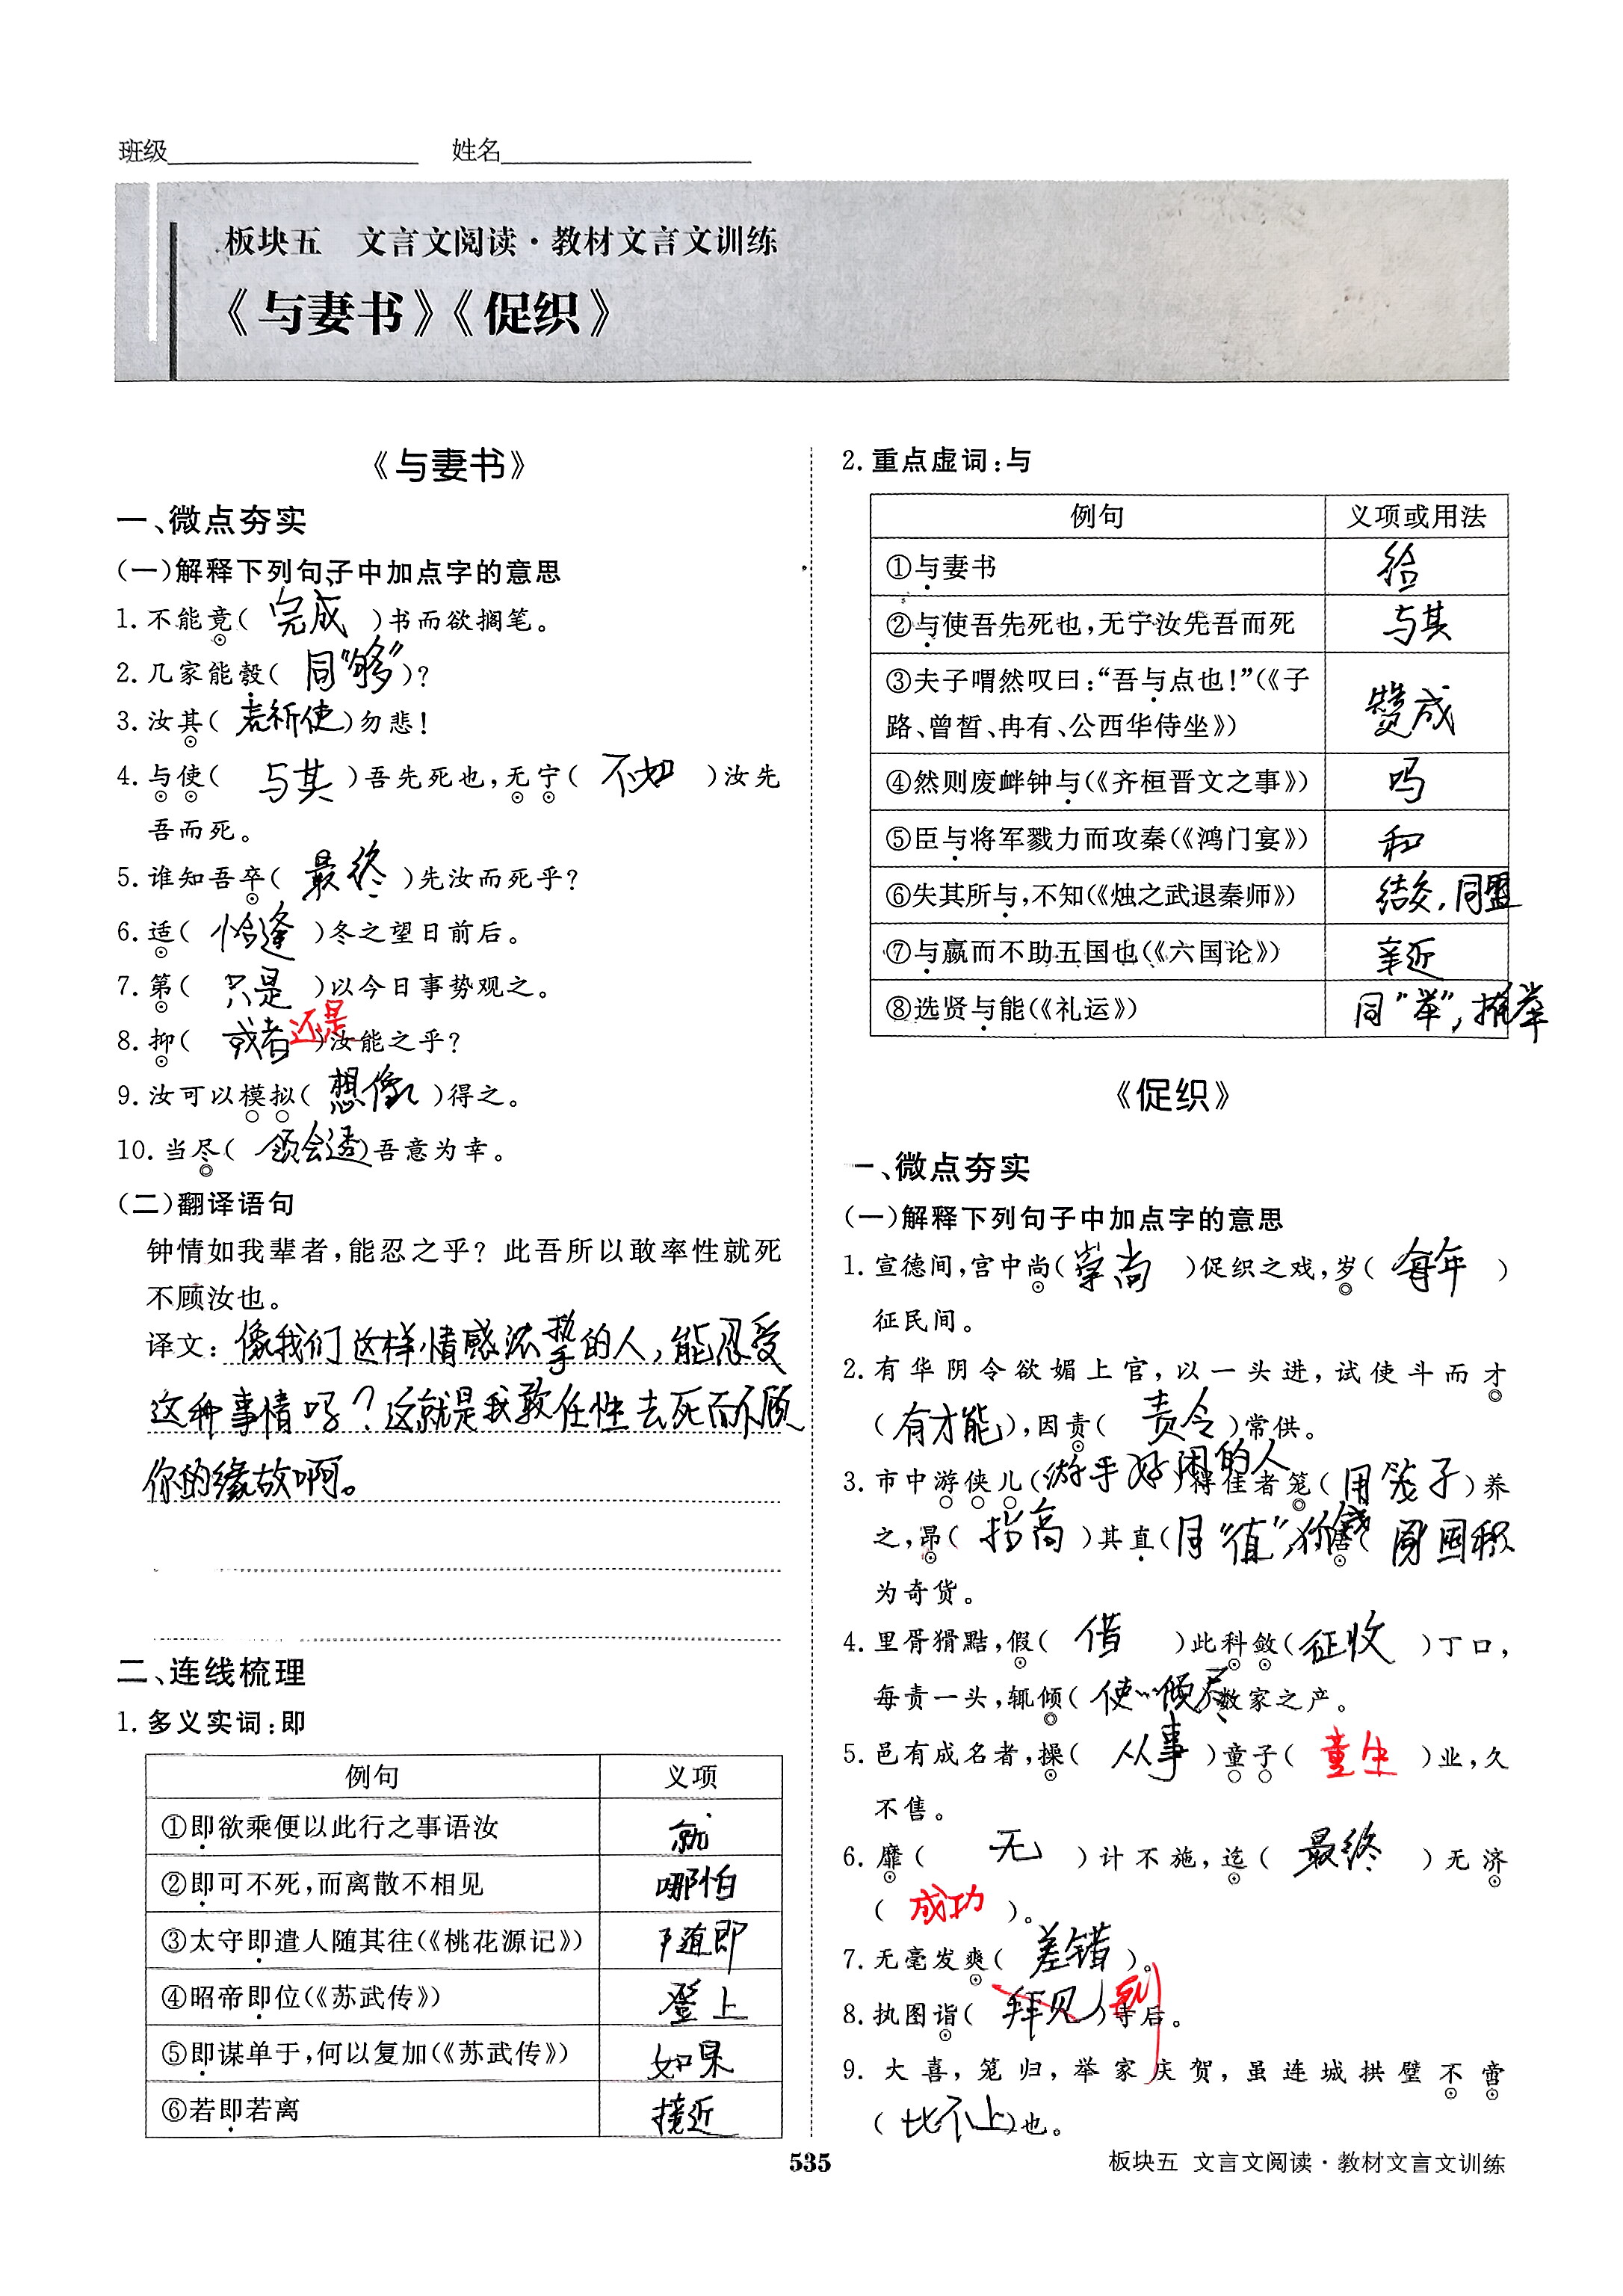 班级 姓名
板块五 文言文阅读·教材文言文训练
《与妻书》《促织》
《与妻书》
一、微点夯实
(一)解释下列句子中加点字的意思
1. 不能竟( 完成 )书而欲搁笔。
2. 几家能彀( 同“够” )?
3. 汝其( 表祈使 )勿悲!
4. 与使( 与其 )吾先死也,无宁( 不如 )汝先
吾而死。
5. 谁知吾卒( 最终 )先汝而死乎?
6. 适( 恰逢 )冬之望日前后。
7. 第( 只是 )以今日事势观之。
8. 抑( 或者 还是 )汝能之乎?
9. 汝可以模拟( 想像 )得之。
10. 当尽( 领会透 )吾意为幸。
(二)翻译语句
钟情如我辈者,能忍之乎? 此吾所以敢率性就死
不顾汝也。
译文: 像我们这样情感浓挚的人,能忍受
这种事情吗?这就是我敢任性去死而不顾
你的缘故啊。
二、连线梳理
1. 多义实词:即
例句 义项
①即欲乘便以此行之事语汝 就
②即可不死,而离散不相见 哪怕
③太守即遣人随其往(《桃花源记》) 随即
④昭帝即位(《苏武传》) 登上
⑤即谋单于,何以复加(《苏武传》) 如果
⑥若即若离 接近
2. 重点虚词:与
例句 义项或用法
①与妻书 给
②与使吾先死也,无宁汝先吾而死 与其
③夫子喟然叹曰:“吾与点也!”(《子
路、曾皙、冉有、公西华侍坐》) 赞成
④然则废衅钟与(《齐桓晋文之事》) 吗
⑤臣与将军戮力而攻秦(《鸿门宴》) 和
⑥失其所与,不知(《烛之武退秦师》) 结交,同盟
⑦与嬴而不助五国也(《六国论》) 亲近
⑧选贤与能(《礼运》) 同“举”,推举
《促织》
一、微点夯实
(一)解释下列句子中加点字的意思
1. 宣德间,宫中尚( 崇尚 )促织之戏,岁( 每年 )
征民间。
2. 有华阴令欲媚上官,以一头进,试使斗而才
( 有才能 ),因责( 责令 )常供。
3. 市中游侠儿( 游手好闲的人 )得佳者笼( 用笼子 )养
之,昂( 抬高 )其直( 同“值”,价钱 )居( 囤积
为奇货。
4. 里胥猾黠,假( 借 )此科敛( 征收 )丁口,
每责一头,辄倾( 使…倾尽 )数家之产。
5. 邑有成名者,操( 从事 )童子( 童生 )业,久
不售。
6. 靡( 无 )计不施,迄( 最终 )无济
( 成功 )。
7. 无毫发爽( 差错 )。
8. 执图诣( 拜见 到 )寺后。
9. 大喜,笼归,举家庆贺,虽连城拱璧不啻
( 比不上 )也。
535 板块五 文言文阅读·教材文言文训练